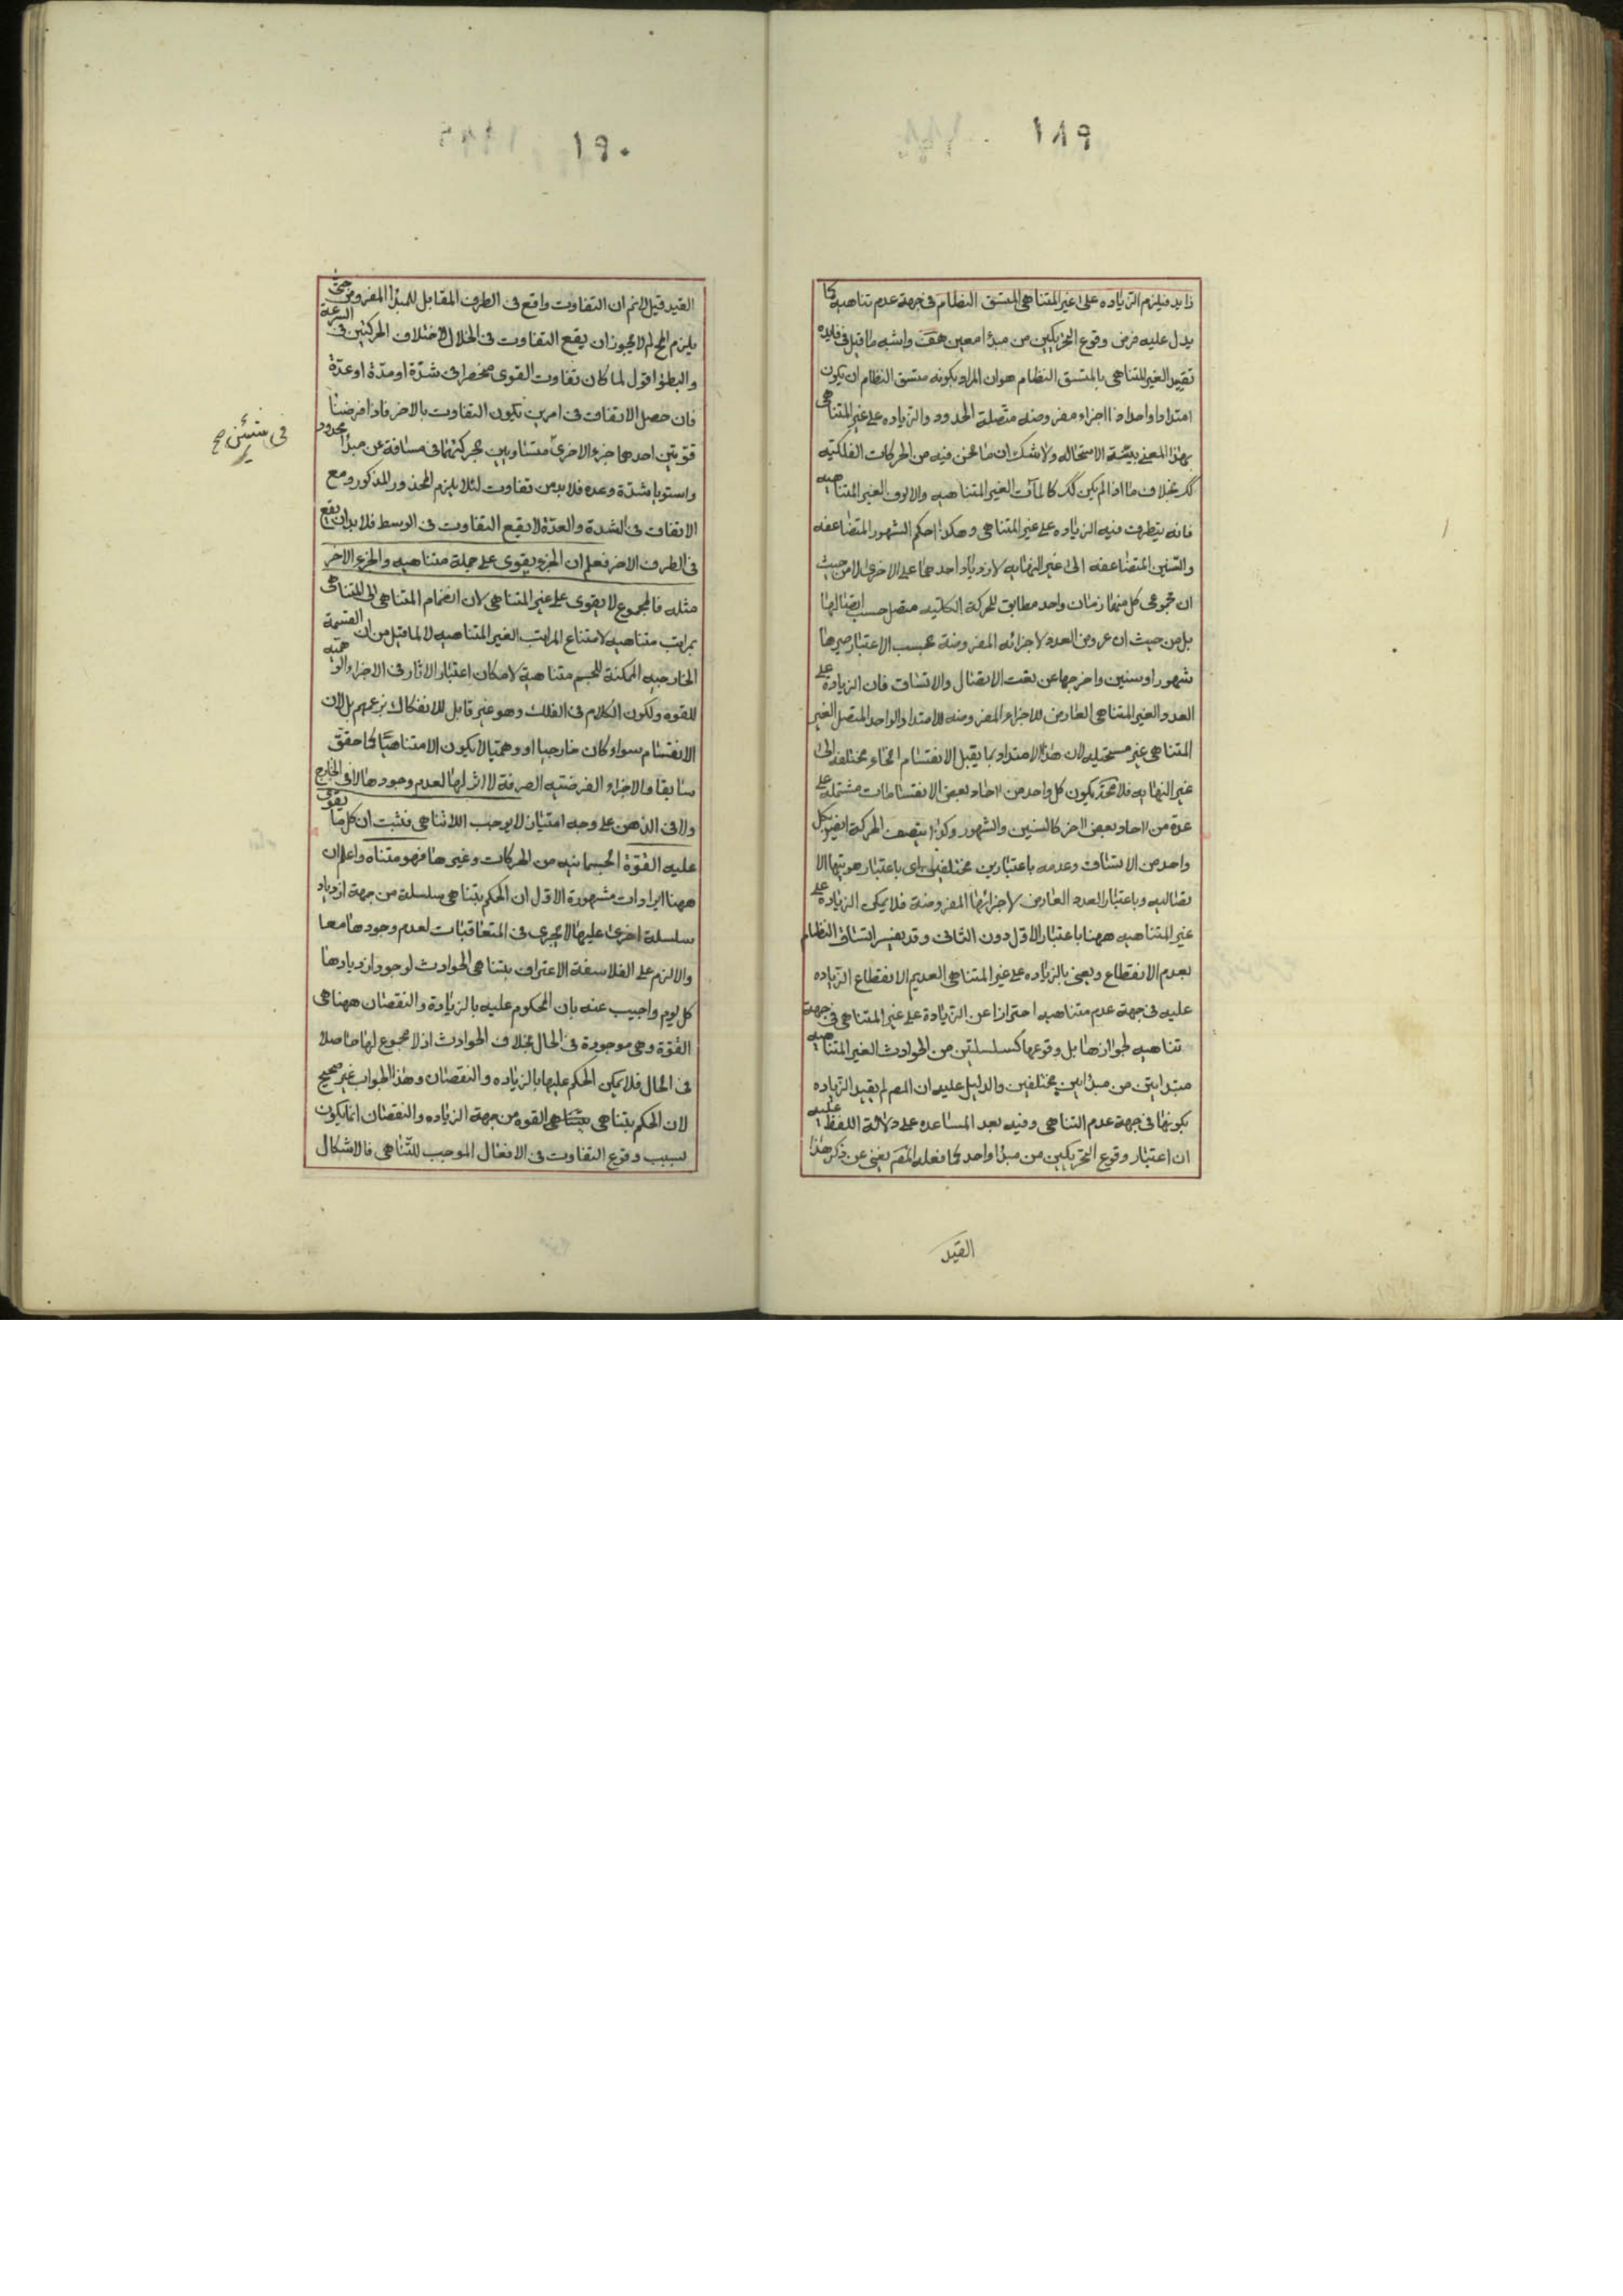 ١٨٩
زايد فيلزم الزياده على غير المتناهى المتسق النظام فى جهة عدم تناهيه كما
يدل عليه فرض وقوع التحريكين من مبدأ معين هف واشبه ما قيل فى فايده
تقييد الغير المتناهى بالمتسق النظام هو ان المراد بكونه متسق النظام ان يكون
امتدادا واحدا ذا اجزاء مفروضه متصلة الحدود والزياده على غير المتناهى
بهذا المعنى بينة الاستحاله ولا شك ان ما نحن فيه من الحركات الفلكيه
كك بخلاف ما اذا لم يكن كك كالمآت الغير المتناهيه والالوف الغير المتناهيه
فانه يتطرق فيه الزياده على غير المتناهى وهكذا حكم الشهور المتضاعفه
والسنين المتضاعفه الى غير النهايه لازدياد احدهما على الاخرى لا من حيث
ان مجموعى كل منهما زمان واحد مطابق للحركة الكليه متصل حسب اتصالها
بل من حيث ان عروض العدد لاجزائه المفروضة بحسب الاعتبار صيرها
شهورا وسنين واخرجها عن نعت الاتصال والاتساق فان الزيادة على
العدد الغير المتناهى العارض للاجزاء المفروضه للامتداد الواحد المتصل الغير
المتناهى غير مستحيله لان هذا الامتداد بما يقبل الانقسام انحاء مختلفة الى
غير النهايه فلا محة يكون كل واحد من احاد بعض الانقسامات مشتمله على
عدة من احاد بعض اخر كالسنين والشهور وكذا يتصف الحركة ايضا بكل
واحد من الاتساق وعدمه باعتبارين مختلفين اى باعتبار هويتها الا
تصاليه وباعتبار العدد العارض لاجزائها المفروضة فلا يمكن الزيادة على
غير المتناهيه ههنا باعتبار الاول دون الثانى وقد يفسر اتساق النظام
بعدم الانقطاع ويعنى بالزياده على غير المتناهى العديم الانقطاع الزياده
عليه فى جهة عدم متناهيه احترازا عن الزيادة على غير المتناهى فى جهة
تناهيه لجوازها بل وقوعها كسلسلتين من الحوادث الغير المتناهيه
مبتدايتين من مبدأين مختلفين والدليل عليه ان المصر لم يقيد الزياده
بكونها فى جهة عدم التناهى وفيه بعد المساعده على دلالة اللفظ عليه
ان اعتبار وقوع التحريكين من مبدأ واحد كما فعله المصر يغنى عن ذكر هذا
القيد
١٩٠
القيد قيل لانم ان التفاوت واقع فى الطرف المقابل للمبدأ المفروض حتى
يلزم المح لم لا يجوز ان يقع التفاوت فى الخلال لاختلاف الحركتين فى السرعة
والبطؤ اقول لما كان تفاوت القوى منحصرا فى شدة او مدة او عدة
فان حصل الاتفاق فى امرين يكون التفاوت بالاخر فاذا فرضنا
قوتين احدهما جزء الاخرى متساويين بحركتهما فى مسافة عن مبدأ محدود
واستويا شدة وعده فلا بد من تفاوت لئلا يلزم المحذور المذكور ومع
الاتفاق فى الشدة والعدة لا يقع التفاوت فى الوسط فلا بد ان يقع
فى الطرف الاخر فعلم ان الجزء يقوى على جملة متناهيه والجزء الاخر
مثله فالمجموع لا يقوى على غير المتناهى لان انضمام المتناهى الى المتناهى
بمراتب متناهيه لامتناع المراتب الغير المتناهيه لا لما قيل من ان القسمة
الخارجيه الممكنة للجسم متناهية لامكان اعتبار الاثار فى الاجزاء الوهميه
للقوه ولكون الكلام فى الفلك وهو غير قابل للانفكاك بزعمهم بل لان
الانقسام سواء كان خارجيا او وهميا لا يكون الا متناهيا كما حقق
سابقا والاجزاء الفرضيه الصرفة لا اثر لها لعدم وجودها لا فى الخارج
ولا فى الذهن على وجه امتياز لا يوجب اللاتناهى فثبت ان كل ما يقوى
عليه القوة الجسمانيه من الحركات وغيرها فهو متناه واعلم ان
ههنا ايرادات مشهورة الاول ان الحكم بتناهى سلسلة من جهة ازدياد
سلسلة اخرى عليها لا يجرى فى المتعاقبات لعدم وجودها معا
والا لزم على الفلاسفة الاعتراف بتناهى الحوادث لوجود ازديادها
كل يوم واجيب عنه بان المحكوم عليه بالزيادة والنقصان ههنا هى
القوة وهى موجودة فى الحال بخلاف الحوادث اذ لا مجموع لها حاصلا
فى الحال فلا يمكن الحكم عليها بالزياده والنقصان وهذا الجواب غير صحيح
لان الحكم بتناهى القوه من جهة الزياده والنقصان انما يكون
بسبب وقوع التفاوت فى الافعال الموجب للتناهى فالاشكال
فى شيئين صح